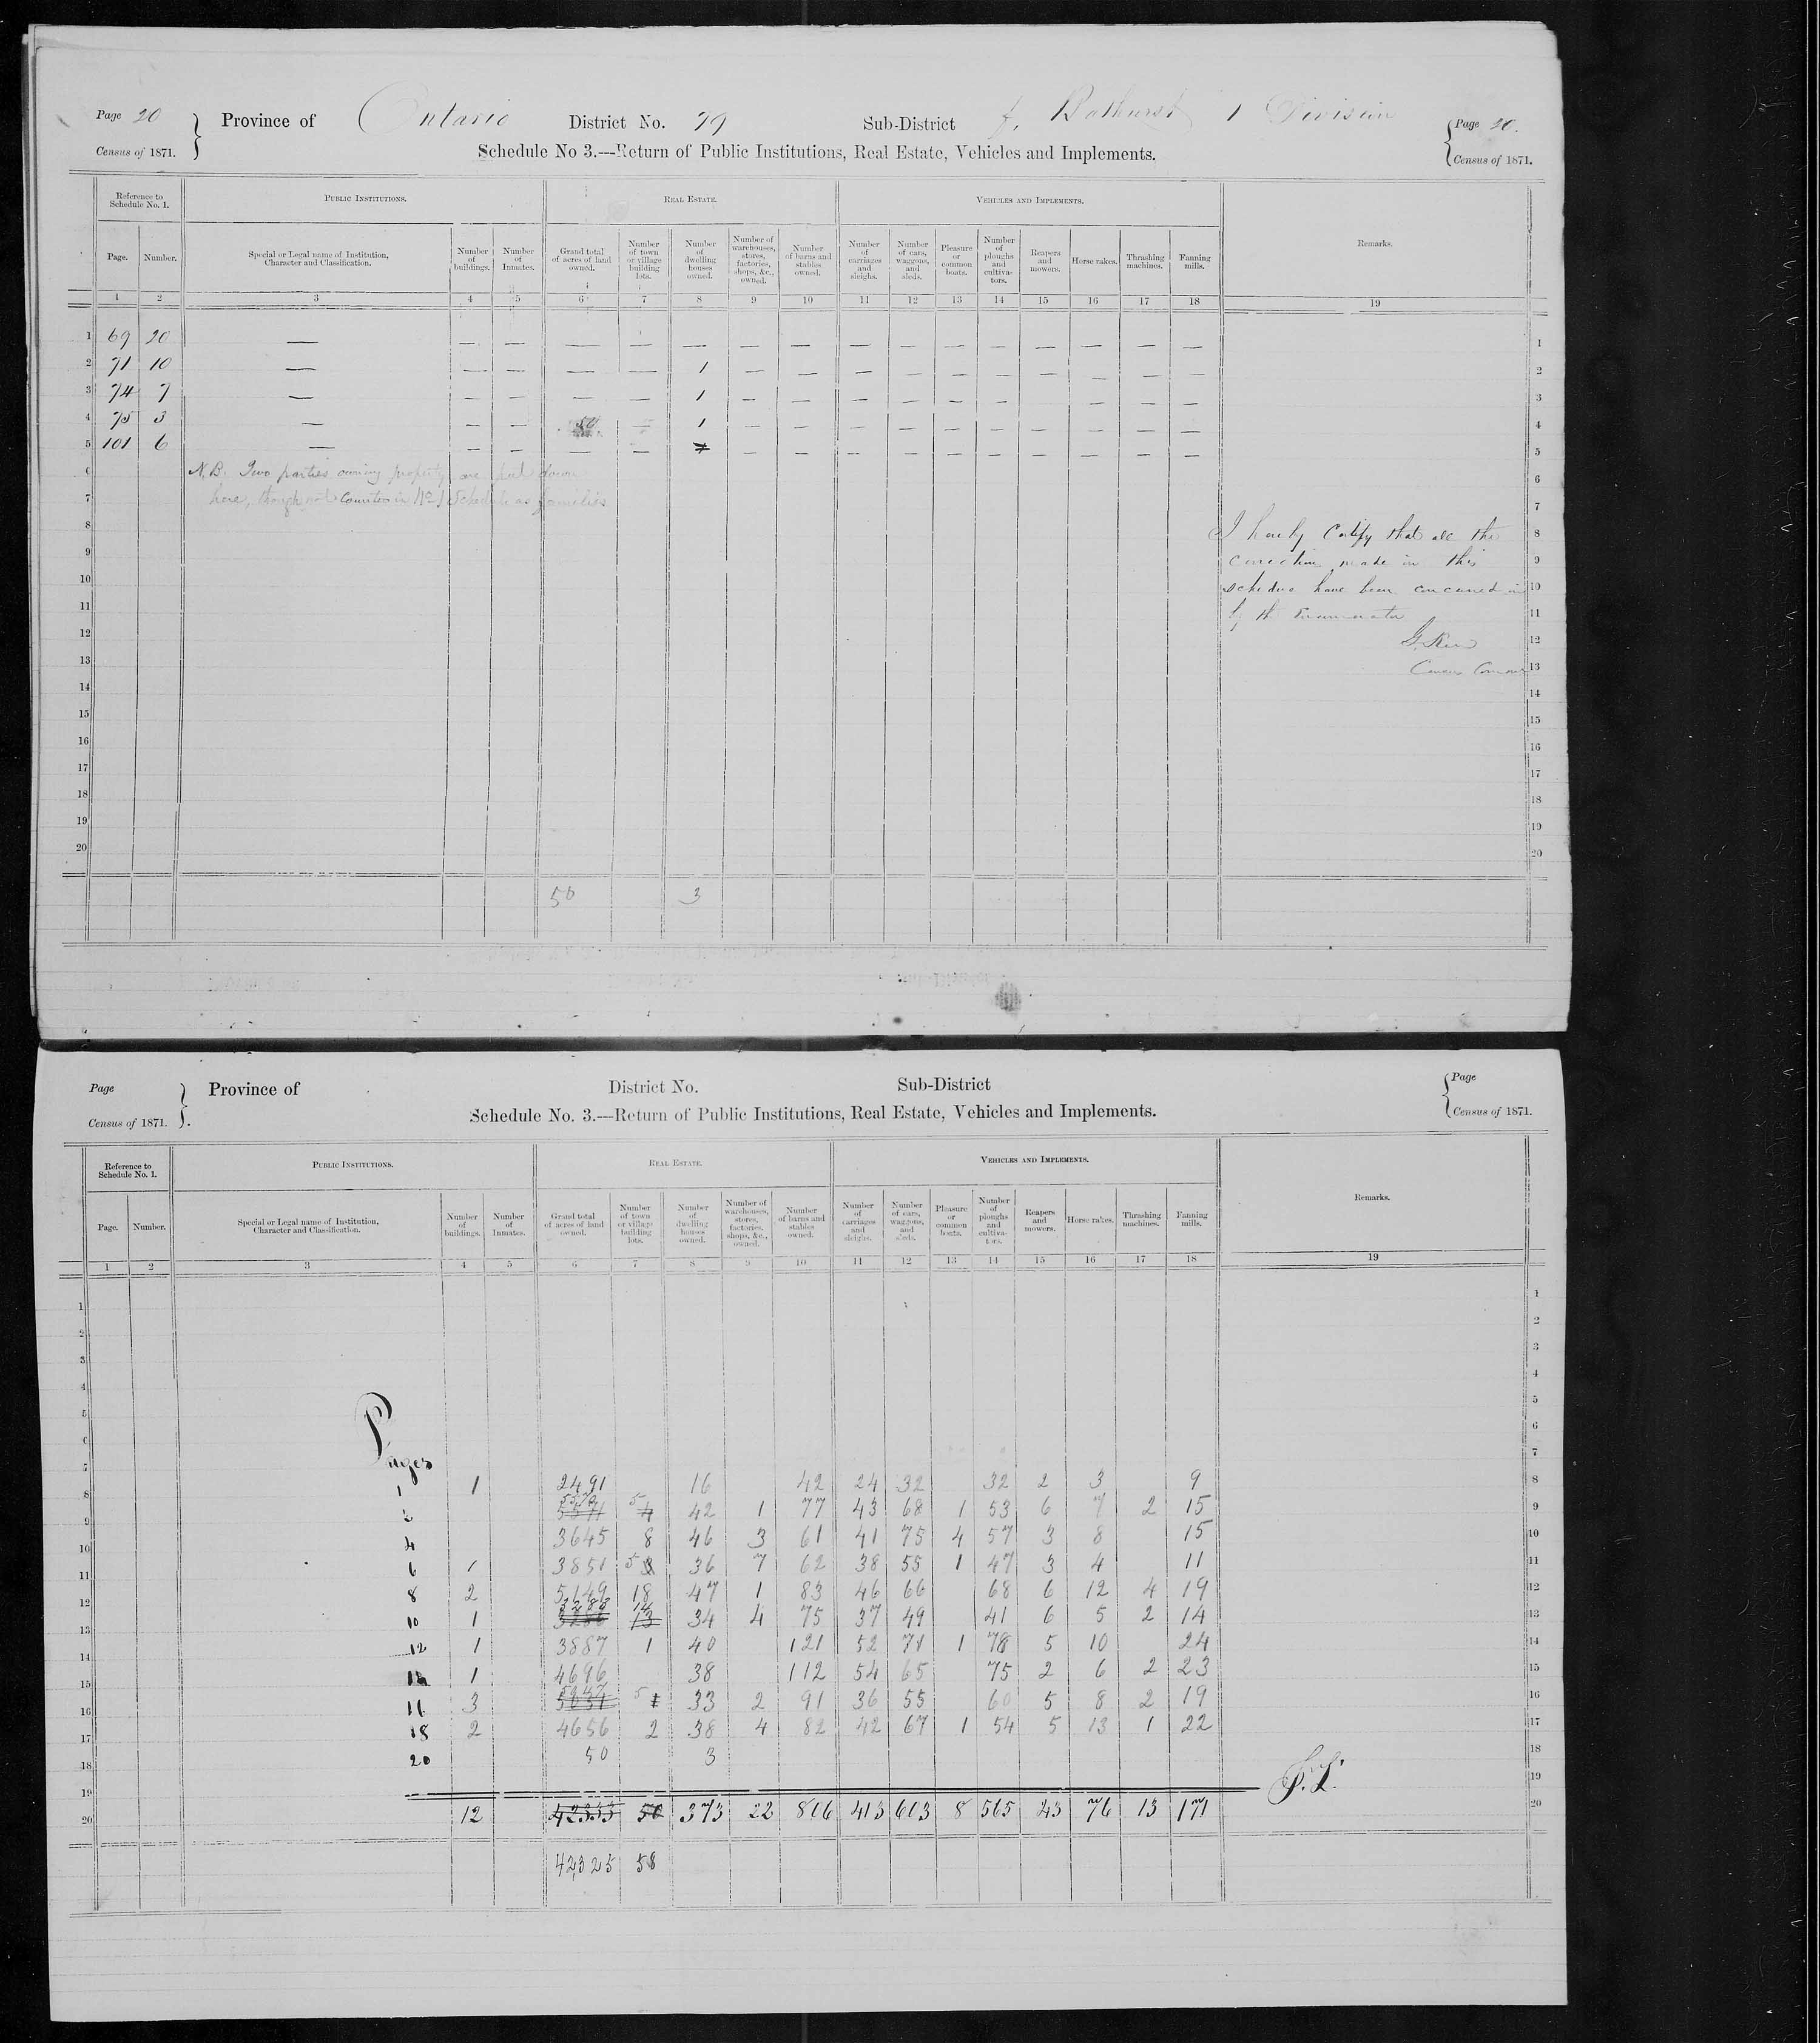 Page 20 } Province of Ontario District No. 79 Sub-District f, Bathurst 1 Division { Page 20.
Census of 1871. Schedule No 3.---Return of Public Institutions, Real Estate, Vehicles and Implements. Census of 1871.
Reference to Schedule No. 1. Public Institutions. Real Estate. Vehicles and Implements. Remarks.
Page. Number. Special or Legal name of Institution, Character and Classification. Number of buildings. Number of Inmates. Grand total of acres of land owned. Number of town or village building lots. Number of dwelling houses owned. Number of warehouses, stores, factories, shops, &c., owned. Number of barns and stables owned. Number of carriages and sleighs. Number of cars, waggons, and sleds. Pleasure or common boats. Number of ploughs and cultivators. Reapers and mowers. Horse rakes. Thrashing machines. Fanning mills.
1 2 3 4 5 6 7 8 9 10 11 12 13 14 15 16 17 18 19
1 69 20 — — — — — — — — — — — — — — — — 1
2 71 10 — — — — — 1 — — — — — — — — — — 2
3 74 7 — — — — — 1 — — — — — — — — — — 3
4 75 3 — — — 50 — 1 — — — — — — — — — — 4
5 101 6 — — — — — — — — — — — — — — — 5
6 N.B. Two parties owning property are put down 6
7 here, though not counted in No 1 Schedule as families 7
8 I hereby Certify that all the 8
9 correction made in this 9
10 schedule have been concurred in 10
11 by the Enumerator 11
12 12
13 Census 13
14 14
15 15
16 16
17 17
18 18
19 19
20 20
50 3
Page } Province of District No. Sub-District { Page
Census of 1871. Schedule No. 3.---Return of Public Institutions, Real Estate, Vehicles and Implements. Census of 1871.
Reference to Schedule No. 1. Public Institutions. Real Estate. Vehicles and Implements. Remarks.
Page. Number. Special or Legal name of Institution, Character and Classification. Number of buildings. Number of Inmates. Grand total of acres of land owned. Number of town or village building lots. Number of dwelling houses owned. Number of warehouses, stores, factories, shops, &c., owned. Number of barns and stables owned. Number of carriages and sleighs. Number of cars, waggons, and sleds. Pleasure or common boats. Number of ploughs and cultivators. Reapers and mowers. Horse rakes. Thrashing machines. Fanning mills.
1 2 3 4 5 6 7 8 9 10 11 12 13 14 15 16 17 18 19
1 1
2 2
3 3
4 4
5 5
6 6
7 Pages 7
8 1 1 2491 16 42 24 32 32 2 3 9 8
9 5 42 1 77 43 68 1 53 6 7 2 15 9
10 4 3645 8 46 3 61 41 75 4 57 3 8 15 10
11 6 1 3851 5 36 7 62 38 55 1 47 3 4 11 11
12 8 2 5149 18 47 1 83 46 66 68 6 12 4 19 12
13 10 1 3288 14 34 4 75 37 49 41 6 5 2 14 13
14 12 1 3887 1 40 121 52 71 1 78 5 10 24 14
15 14 1 4696 38 112 54 65 75 2 6 2 23 15
16 16 3 5 33 2 91 36 55 60 5 8 2 19 16
17 18 2 4656 2 38 4 82 42 67 1 54 5 13 1 22 17
18 20 50 3 18
19 19
20 12 42333 50 373 22 806 413 603 8 565 43 76 13 171 20
42325 58